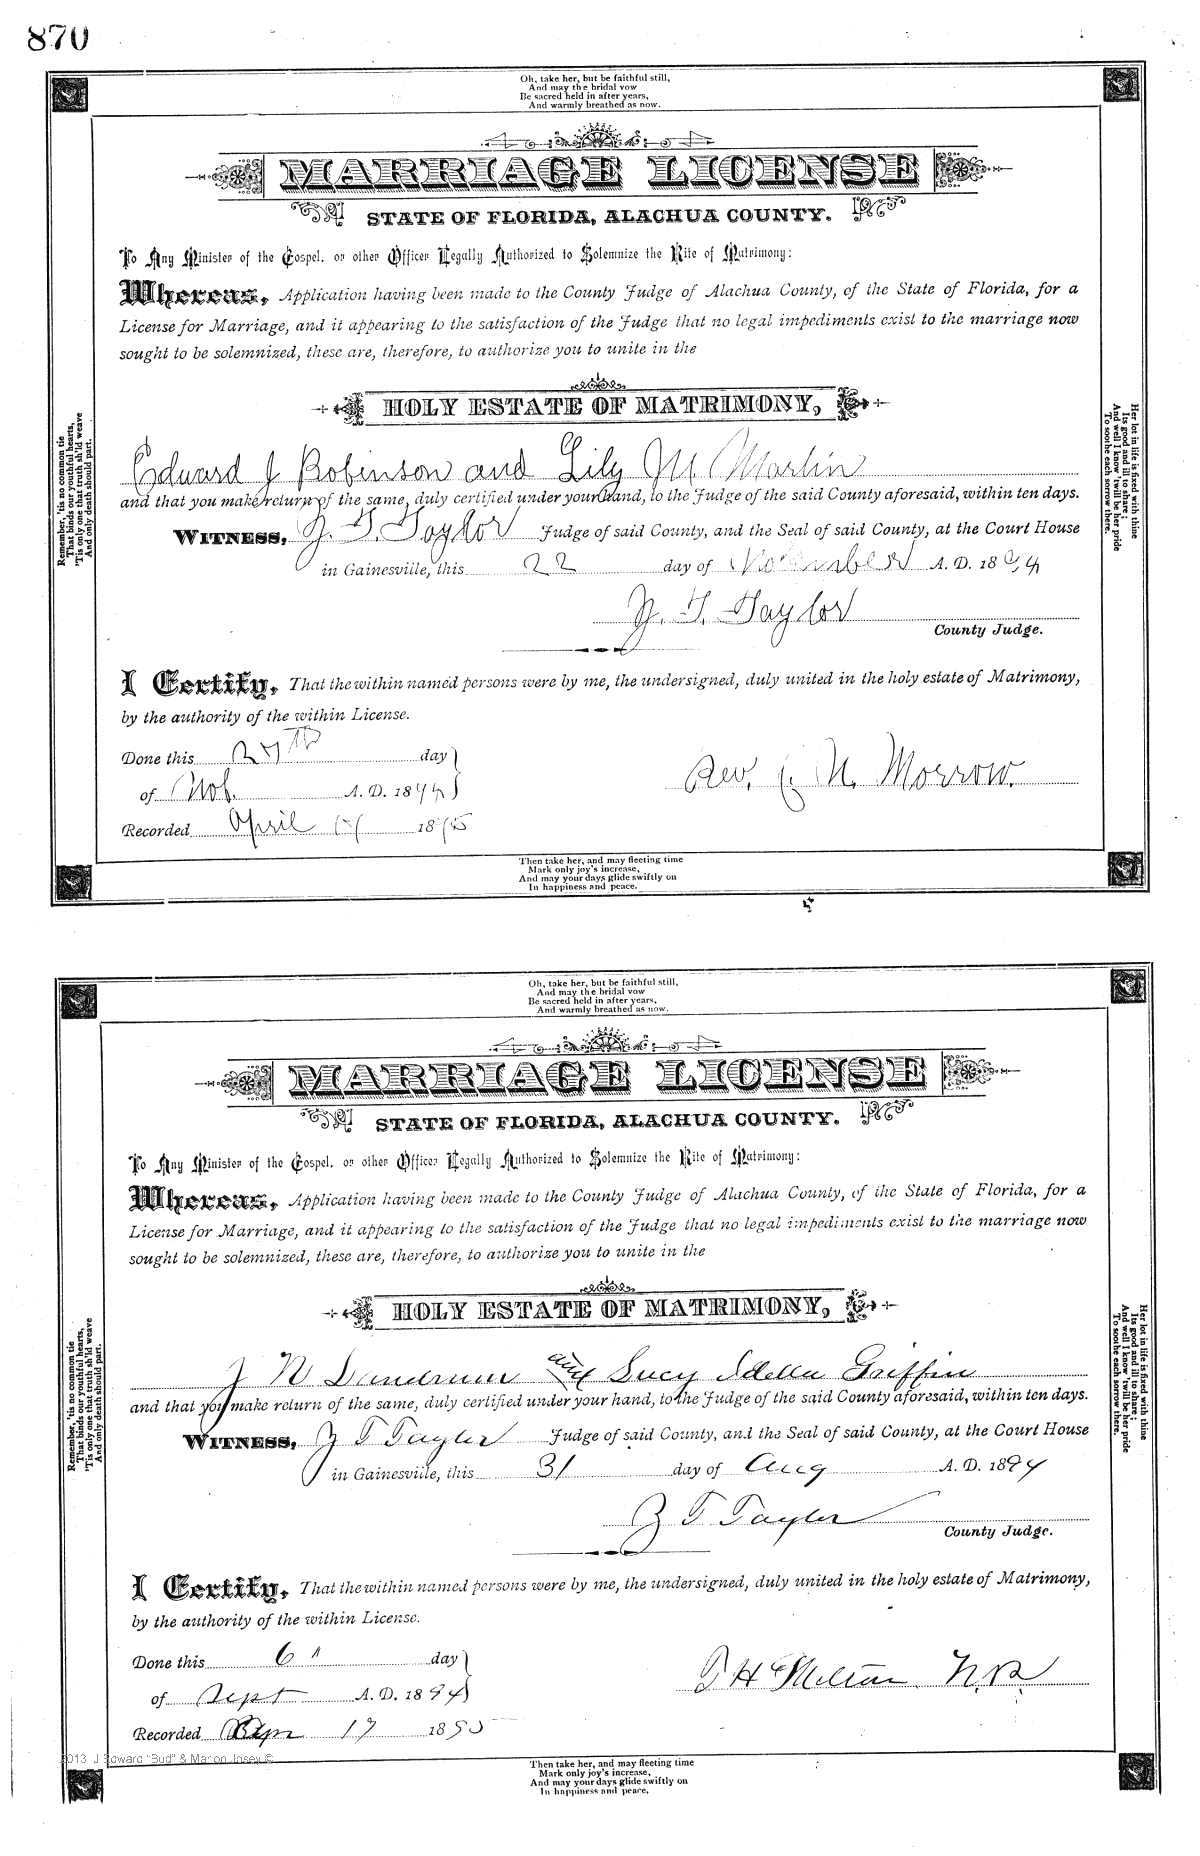 870
Oh, take her, but be faithful still,
And may the bridal vow
Be sacred held in after years,
And warmly breathed as now.
MARRIAGE LICENSE
STATE OF FLORIDA, ALACHUA COUNTY.
To Any Minister of the Gospel, or other Officer Legally Authorized to Solemnize the Rite of Matrimony:
Whereas, Application having been made to the County Judge of Alachua County, of the State of Florida, for a
License for Marriage, and it appearing to the satisfaction of the Judge that no legal impediments exist to the marriage now
sought to be solemnized, these are, therefore, to authorize you to unite in the
HOLY ESTATE OF MATRIMONY,
Edward J Robinson and Lily M Martin
and that you make return of the same, duly certified under your hand, to the Judge of the said County aforesaid, within ten days.
WITNESS, Z. T. Taylor Judge of said County, and the Seal of said County, at the Court House
in Gainesville, this 22 day of November A. D. 1894
Z. T. Taylor
County Judge.
I Certify, That the within named persons were by me, the undersigned, duly united in the holy estate of Matrimony,
by the authority of the within License.
Done this 27th day
of Nov. A. D. 1894
Rev. N. Morrow.
Recorded April 1895
Remember, 'tis no common tie
That binds our youthful hearts,
'Tis only one that truth sh'ld weave
And only death should part.
Her lot in life is fixed with thine
Its good and ill to share;
And well I know 'twill be her pride
To soothe each sorrow there.
Then take her, and may fleeting time
Mark only joy's increase,
And may your days glide swiftly on
In happiness and peace.
Oh, take her, but be faithful still,
And may the bridal vow
Be sacred held in after years,
And warmly breathed as now.
MARRIAGE LICENSE
STATE OF FLORIDA, ALACHUA COUNTY.
To Any Minister of the Gospel, or other Officer Legally Authorized to Solemnize the Rite of Matrimony:
Whereas, Application having been made to the County Judge of Alachua County, of the State of Florida, for a
License for Marriage, and it appearing to the satisfaction of the Judge that no legal impediments exist to the marriage now
sought to be solemnized, these are, therefore, to authorize you to unite in the
HOLY ESTATE OF MATRIMONY,
J N and Lucy Idella Griffin
and that you make return of the same, duly certified under your hand, to the Judge of the said County aforesaid, within ten days.
WITNESS, Z T Taylor Judge of said County, and the Seal of said County, at the Court House
in Gainesville, this 31 day of Aug A. D. 1894
Z T Taylor
County Judge.
I Certify, That the within named persons were by me, the undersigned, duly united in the holy estate of Matrimony,
by the authority of the within License.
Done this 6" day
of Sept A. D. 1894
Recorded Apr 17 1895
Remember, 'tis no common tie
That binds our youthful hearts,
'Tis only one that truth sh'ld weave
And only death should part.
Her lot in life is fixed with thine
Its good and ill to share;
And well I know 'twill be her pride
To soothe each sorrow there.
2013 J Edward "Bud" & Marion Josey ©
Then take her, and may fleeting time
Mark only joy's increase,
And may your days glide swiftly on
In happiness and peace.